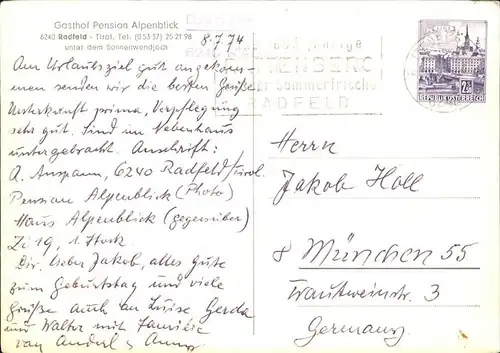 Gasthof Pension Alpenblick
6240 Radfeld - Tirol, Tel. (0 53 37) 25 21 98
unter dem Sonnenwendjoch
8.7.74
Am Urlaubsziel gut angekom-
men senden wir die besten Grüße
Unterkunft prima, Verpflegung
sehr gut. Sind im Nebenhaus
untergebracht. Anschrift:
A. Anspann, 6240 Radfeld/Tirol
Pension Alpenblick (Photo)
Haus Alpenblick (gegenüber)
Zi 19, 1. Stock.
Dir, lieber Jakob, alles gute
zum Geburtstag und viele
Grüße auch an Luise Gerda
und Walter mit Familie
von Anderl &
RATTENBERG
Sommerfrische
RADFELD
2S
REPUBLIK ÖSTERREICH
Herrn
Jakob Holl
8 München 55
Trautweinstr. 3
Germany.